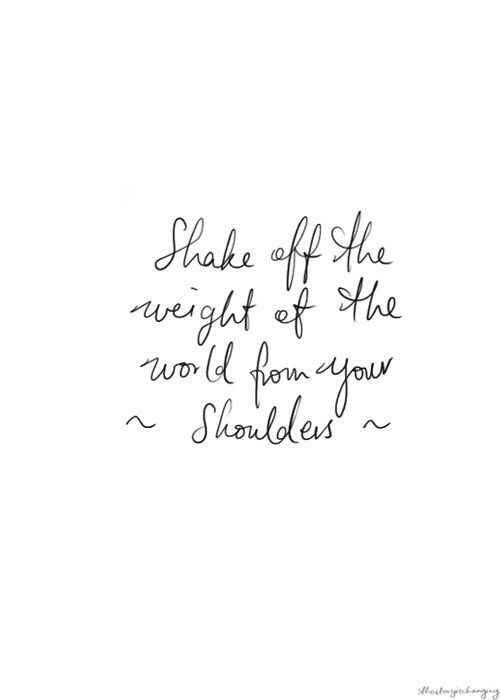 Shake off the
weight of the
world from your
~ Shoulders ~
thestoryischanging